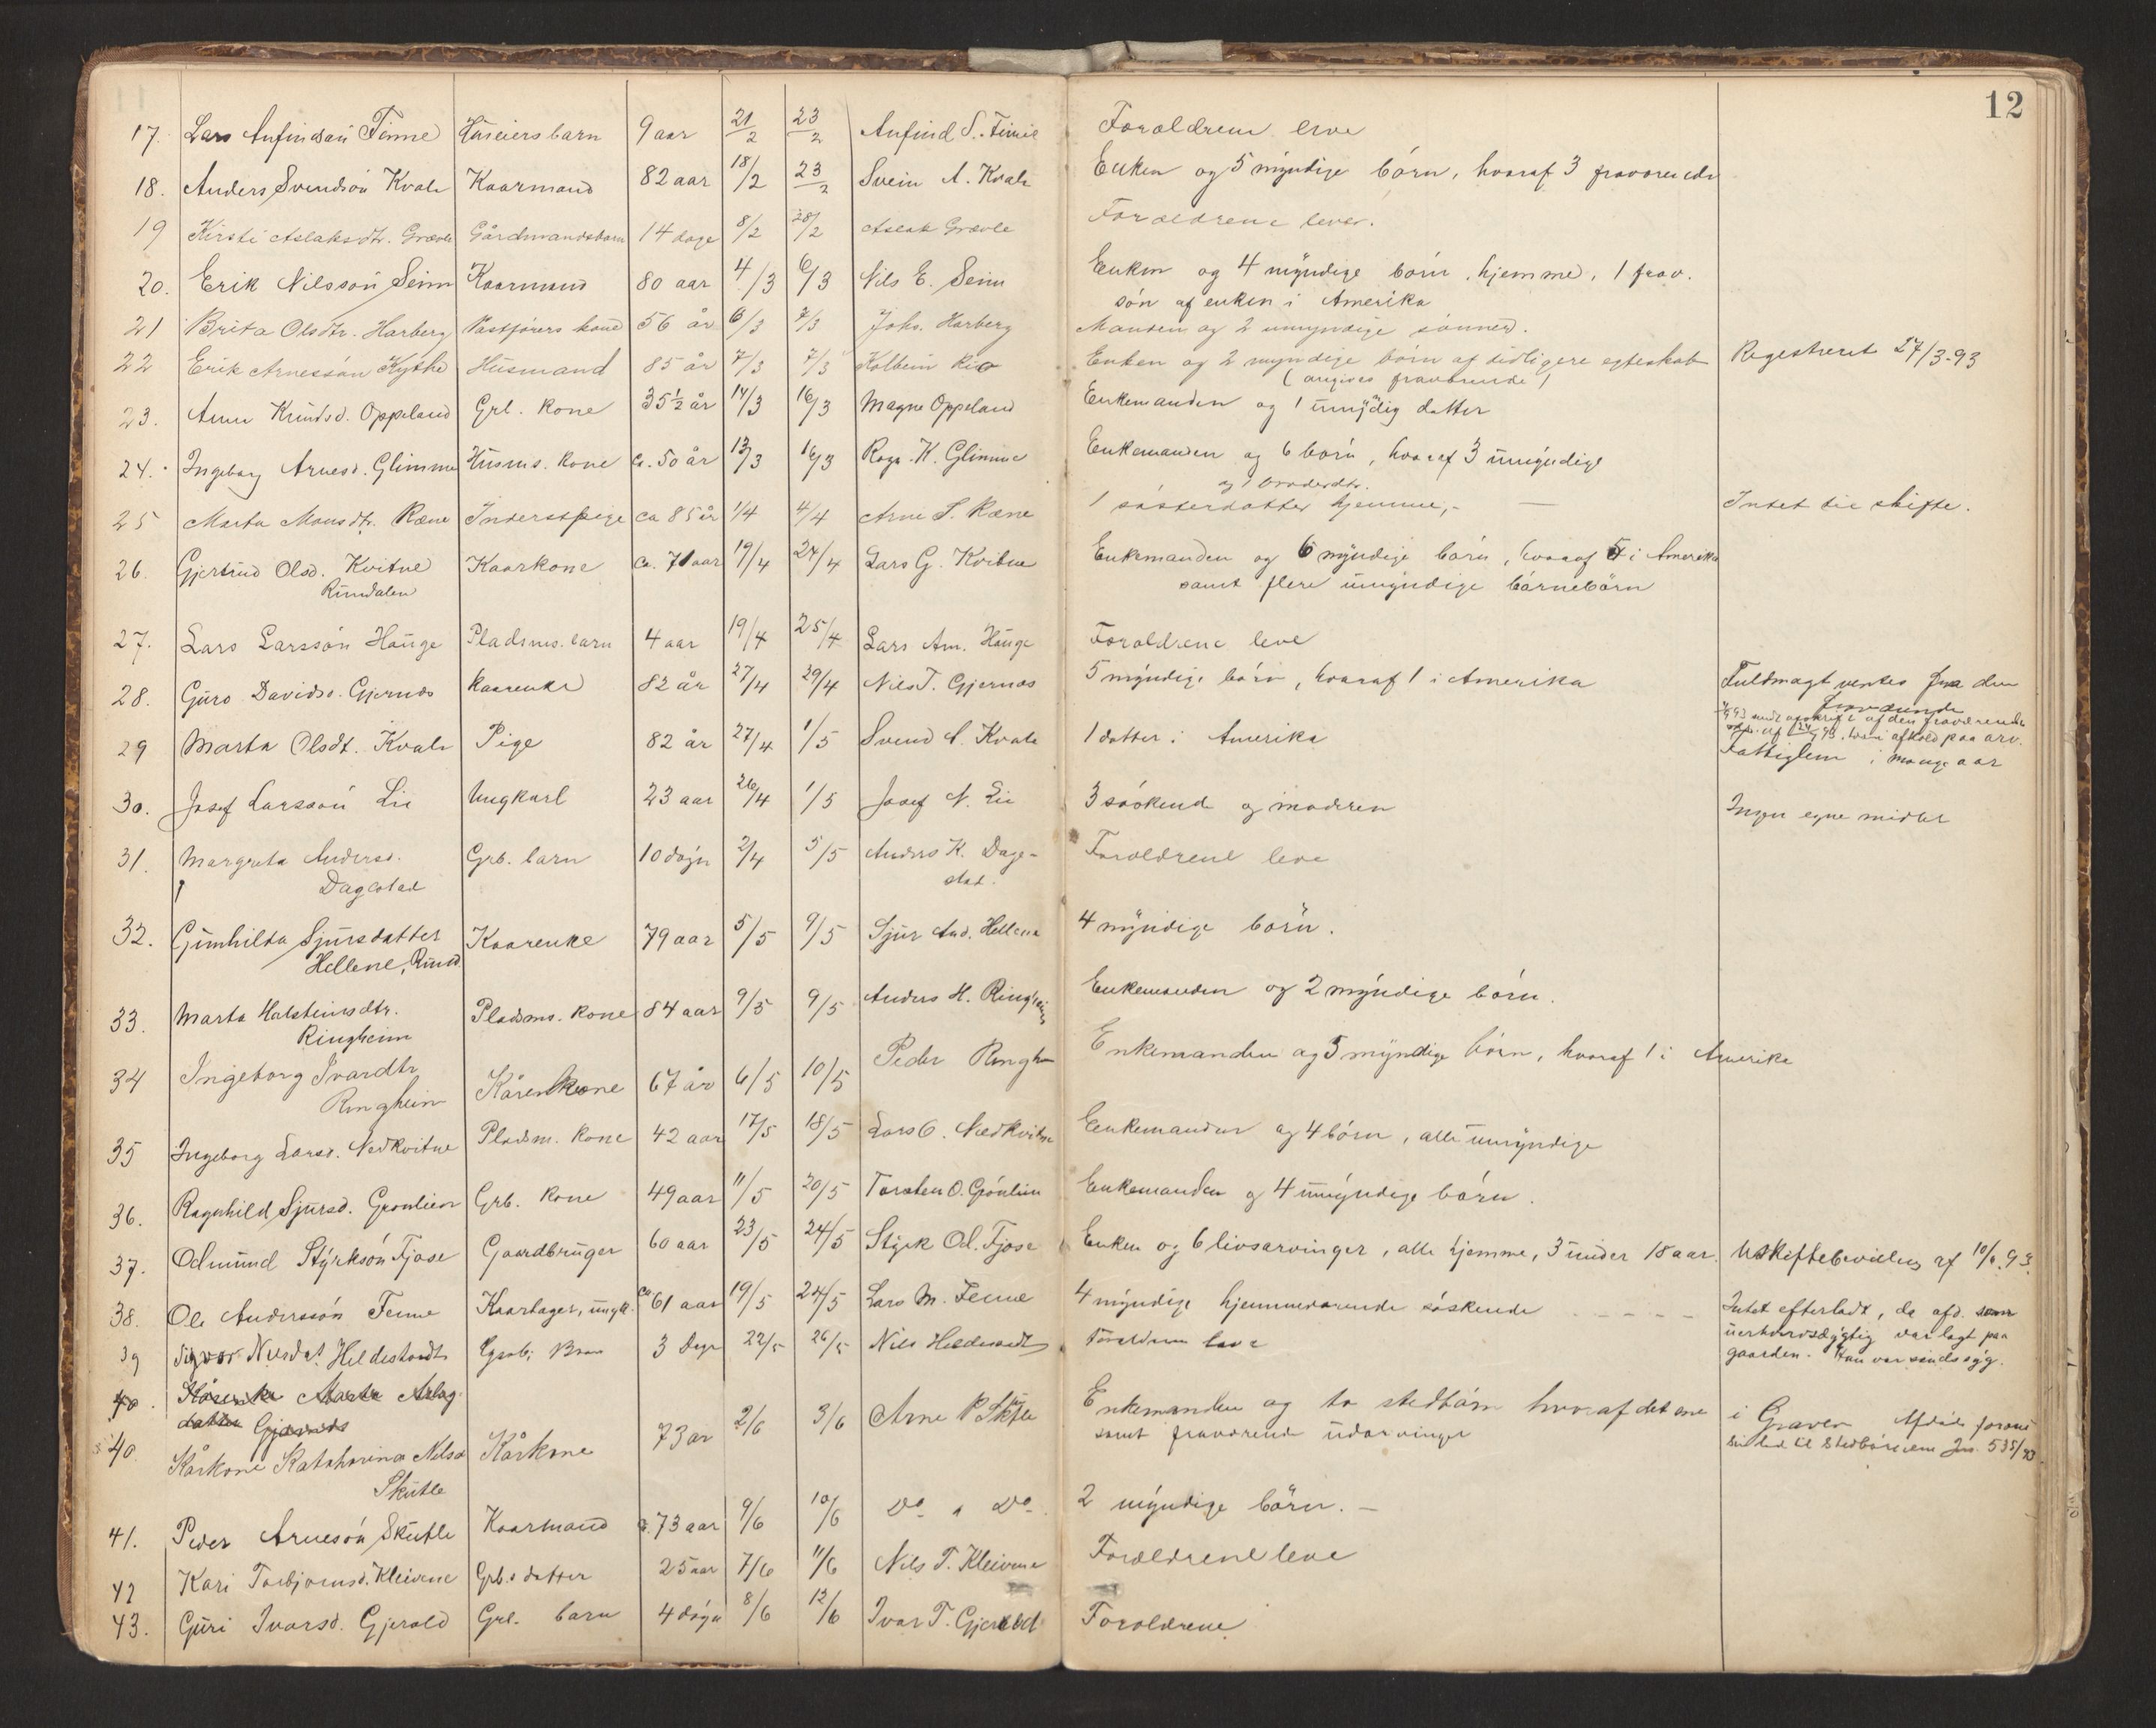 11
12
17. Lars Anfindsøn Finne Huseiersbarn 9 aar 21/2 23/2 Anfind S. Finne Forældrene leve
18. Anders Svendsøn Kvale Kaarmand 82 aar 18/2 23/2 Svein A. Kvale Enken og 5 myndige børn, hvoraf 3 fraværende
19 Kirsti Aslaksdtr. Grævle Gårdmandsbarn 14 dage 8/2 28/2 Aslak Grævle Forældrene lever.
20. Erik Nilssøn Seim Kaarmand 80 aar 4/3 6/3 Nils E. Seim Enken og 4 myndige børn, hjemme, 1 frav.
søn af enken i Amerika
21 Brita Olsdtr. Harberg Postførers kone 56 år 6/3 7/3 Johs. Harberg Manden og 2 umyndige sønner.
22 Erik Arnessøn Kythe Husmand 85 år 7/3 7/3 Kolbein Rio Enken og 2 myndige børn af tidligere egteskab Registreret 27/3-93
(angives fraværende)
23. Anna Knudsd. Oppeland Grb. kone 35½ år 14/3 16/3 Magne Oppeland Enkemanden og 1 umyndig datter
24. Ingeborg Arnesd. Glimme Husms. kone Ca. 50 år 13/3 16/3 Ragn. K. Glimme Enkemanden og 6 børn, hvoraf 3 umyndige
og 1 broderdtr.
25 Marta Monsdtr. Ræne Inderstpige ca 85 år 1/4 4/4 Arne S. Ræne 1 søsterdatter hjemme, - — Intet til skifte.
26. Gjertrud Olsd. Kvitne Kaarkone Ca. 71 aar 19/4 24/4 Lars G. Kvitne Enkemanden og 6 myndige børn, hvoraf 5 i Amerika
Rundalen samt flere umyndige børnebørn
27. Lars Larssøn Hauge Pladsms. barn 4 aar 19/4 25/4 Lars Am. Hauge Forældrene leve
28. Guro Davidsd. Gjernes Kaarenke 82 år 27/4 29/4 Nils T. Gjernes 5 myndige børn, hvoraf 1 i Amerika Fuldmagt ventes fra den
fraværende
29 Marta Olsdt. Kvale Pige 82 år 27/4 1/5 Svend A. Kvale 1 datter i Amerika
Fattiglem i mange aar
30. Josef Larssøn Lie Ungkarl 23 aar 26/4 1/5 Josef N. Lie 3 søskende og moderen Ingen egne midler
31. Margreta Andersd. Grb. barn 10 døgn 2/4 5/5 Anders K. Dage- Forældrene leve
Dagestad stad.
32. Gunhilda Sjursdatter Kaarenke 79 aar 5/5 9/5 Sjur And. Hellene 4 myndige børn.
Hellene, Rund.
33. Marta Halsteinsdtr. Pladsms. kone 84 aar 9/5 9/5 Anders H. Ringheim Enkemanden og 2 myndige børn.
Ringheim
34 Ingeborg Ivardtr Kårenkone 67 år 6/5 10/5 Peder Ringhm Enkemanden og 5 myndige børn, hvoraf 1 i Amerika
Ringheim
35 Ingeborg Larsd. Nedkvitne Pladsm. kone 42 aar 17/5 18/5 Lars O. Nedkvitne Enkemanden og 4 børn, alle umyndige
36. Ragnhild Sjursd. Grønlien Grb. kone 49 aar 11/5 20/5 Torsten O. Grønlien Enkemanden og 4 umyndige børn.
37. Odmund Styrksøn Fjose Gaardbruger 60 aar 23/5 24/5 Styrk Od. Fjose Enken og 6 livsarvinger, alle hjemme, 3 under 18 aar. Uskiftebevilling af 10/6 93.
38. Ole Anderssøn Fenne Kaartager, ungk. Ca 61 aar 19/5 24/5 Lars M. Fenne 4 myndige hjemmeværende søskende - - - - Intet efterladt, da afd. som
uerhvervsdygtig var lagt paa
gaarden. Han var sindssyg.
39 Sigvor Nilsdat. Hildestvedt Barn 3 Dage 22/5 26/5 Nils Hildestvedt Forældrene leve
40. Kårenke Marta Aslag-
datter Gjærnes
40. Kårkone Katharina Nilsd Kårkone 73 ar 2/6 3/6 Arne P Skutle Enkemanden og to stedbørn hvoraf det ene i Graven
Skutle samt fraværende udarvinger
41. Peder Arnesøn Skutle Kaarmand c. 73 aar 9/6 10/6 Do Do 2 myndige børn. -
42 Kari Torbjørnsd. Kleivene Grb.s datter 25 aar 7/6 11/6 Nils T. Kleivene Forældrene leve
43. Guri Ivarsd. Gjerald Grb. barn 4 døgn 8/6 12/6 Ivar T. Gjerald Forældrene